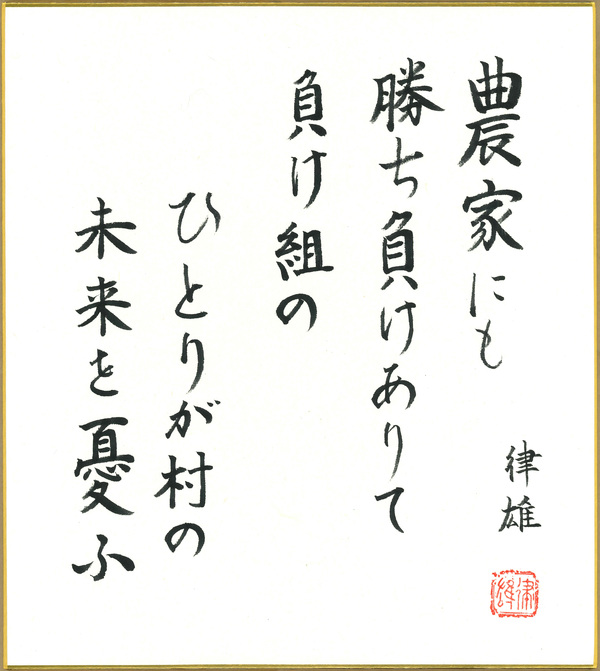 農家にも
勝ち負けありて
負け組の
ひとりが村の
未来を憂ふ
律雄
律雄